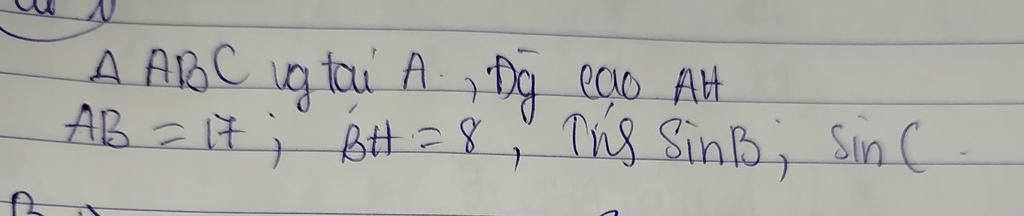 Δ ABC vg tại A, Đg cao AH
AB = 17; BH = 8, Tính SinB; Sin C.